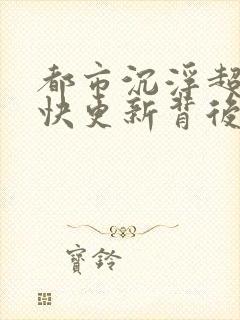 都市沉浮超
快更新背後
寶鈴